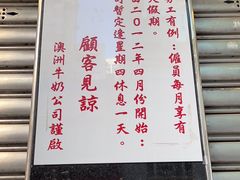 工有例：僱員每月享有
天假期。
由二〇一二年四月份開始：
司暫定逢星期四休息一天。
顧客見諒
澳洲牛奶公司謹啟